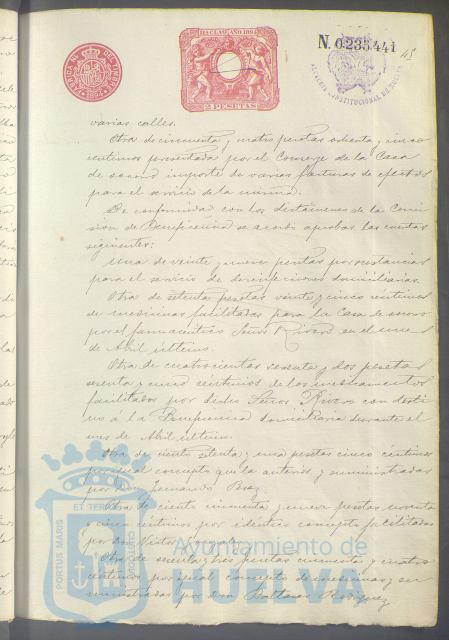 11ª CLASE AÑO 189
N. 0.235.441
48
FABRICA NAL DEL TIMBRE
2 PESETAS
ALCALDIA CONSTITUCIONAL DE HUELVA
varias calles.
Otra de cincuenta y cuatro pesetas ochenta y cinco
centimos presentada por el Conserge de la Casa
de socorro importe de varias facturas de efectos
para el servicio de la misma.
De conformidad con los dictamenes de la Comi
sion de Beneficencia se acordó aprobar las cuentas
siguientes:
Una de veinte y nueve pesetas por sustancias
para el servicio de desinfecciones domiciliarias.
Otra de setenta pesetas veinte y cinco centimos
de medicinas facilitadas para la Casa de socorro
por el farmaceutico Señor Rivero en el mes
de Abril último.
Otra de cuatrocientas sesenta y dos pesetas
sesenta y cinco centimos de los medicamentos
facilitados por dicho Señor Rivero con desti
no á la Beneficencia domiciliaria durante el
mes de Abril último.
Otra de ciento setenta y una pesetas cinco centimos
por igual concepto que la anterior y suministradas
por Don Fernando
Otra de ciento cincuenta y nueve pesetas noventa
y cinco centimos por identico concepto facilitadas
por Don Victor
Otra de sesenta y tres pesetas cincuenta y cuatro
centimos por igual concepto de medicinas y su
ministradas por Don Baltasar Rodriguez
PORTUS MARIS
ET TERRAE
CUSTODIA
Ayuntamiento de
HUELVA